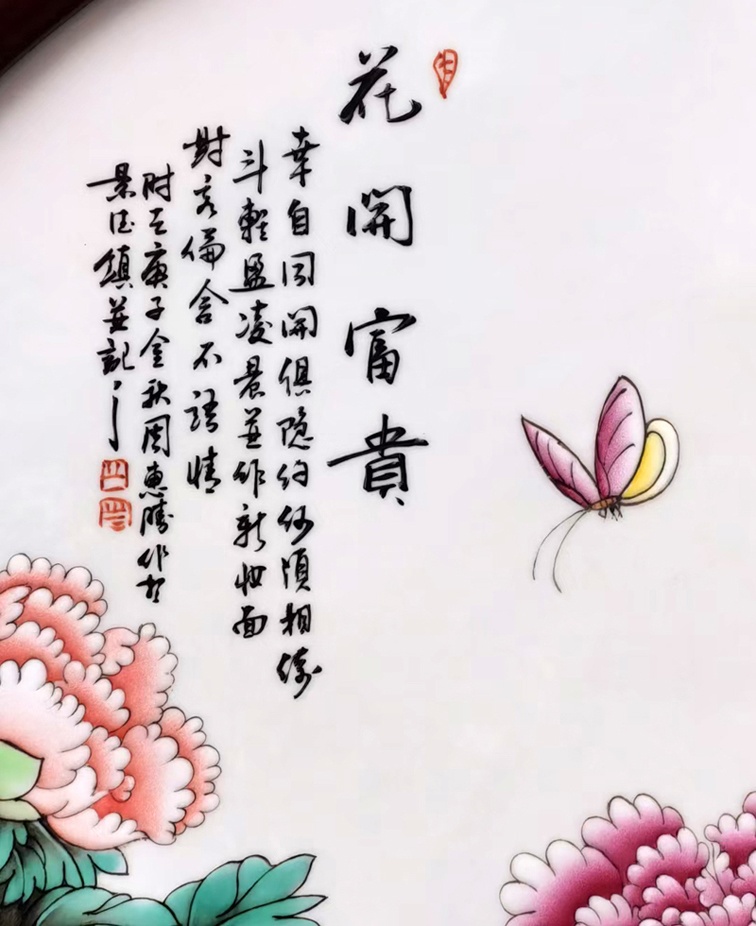 花開富貴
幸自同開俱隱約何須相倚
斗輕盈凌晨並作新妝面
對客偏含不語情
時庚子金秋周惠勝作於
景德鎮並記